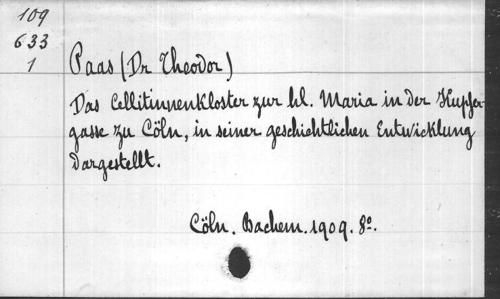 109
633
1
Paas (Dr Theodor)
Das Cellitinnenkloster zur hl. Maria in der Kupfer-
gasse zu Cöln, in seiner geschichtlichen Entwicklung
dargestellt.
Cöln. Bachem. 1909. 8º.